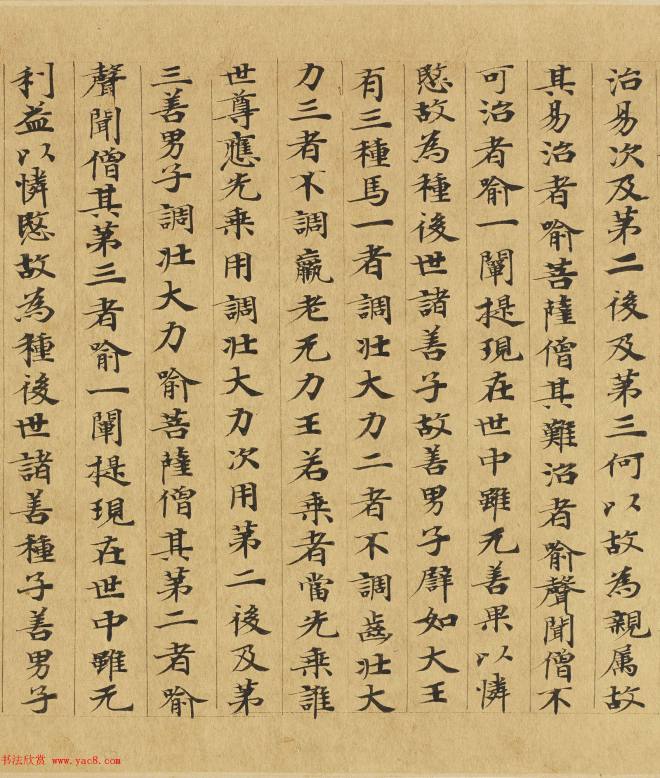 治易次及第二後及第三何以故為親属故
其易治者喻菩薩僧其難治者喻聲聞僧不
可治者喻一闡提現在世中雖无善果以憐
愍故為種後世諸善子故善男子譬如大王
有三種馬一者調壯大力二者不調齒壯大
力三者不調羸老无力王若乘者當先乘誰
世尊應先乘用調壯大力次用第二後及第
三善男子調壯大力喻菩薩僧其第二者喻
聲聞僧其第三者喻一闡提現在世中雖无
利益以憐愍故為種後世諸善種子善男子
书法欣赏 www.yac8.com